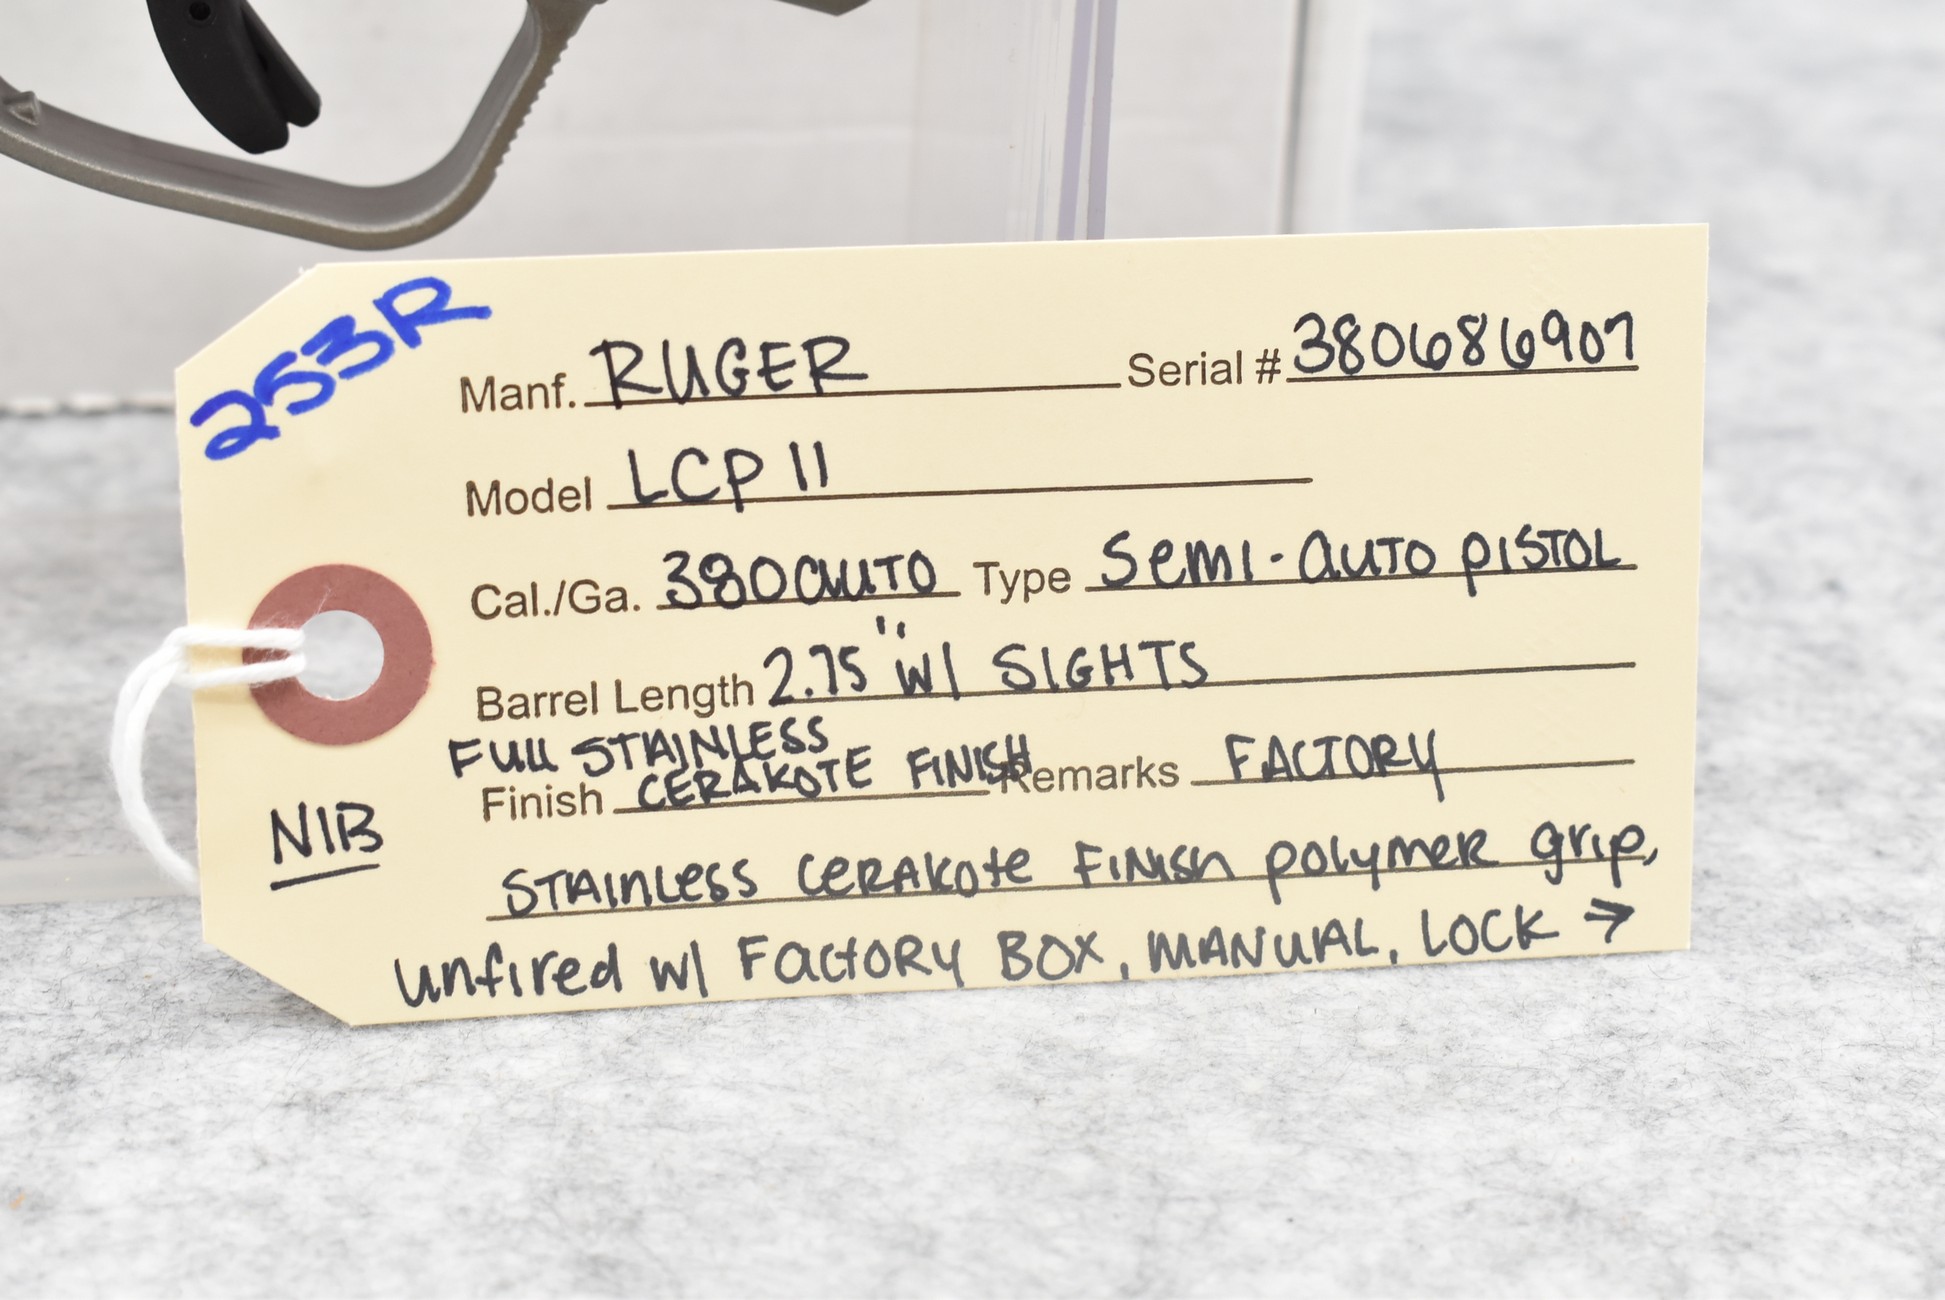 253R
Manf. RUGER Serial # 380686907
Model LCP II
Cal./Ga. 380 auto Type Semi-Auto Pistol
Barrel Length 2.75" w/ SIGHTS
FULL STAINLESS
Finish CERAKOTE FINISH Remarks FACTORY
NIB
STAINLESS CERAKOTE FINISH polymer grip,
unfired w/ Factory BOX, MANUAL, LOCK →